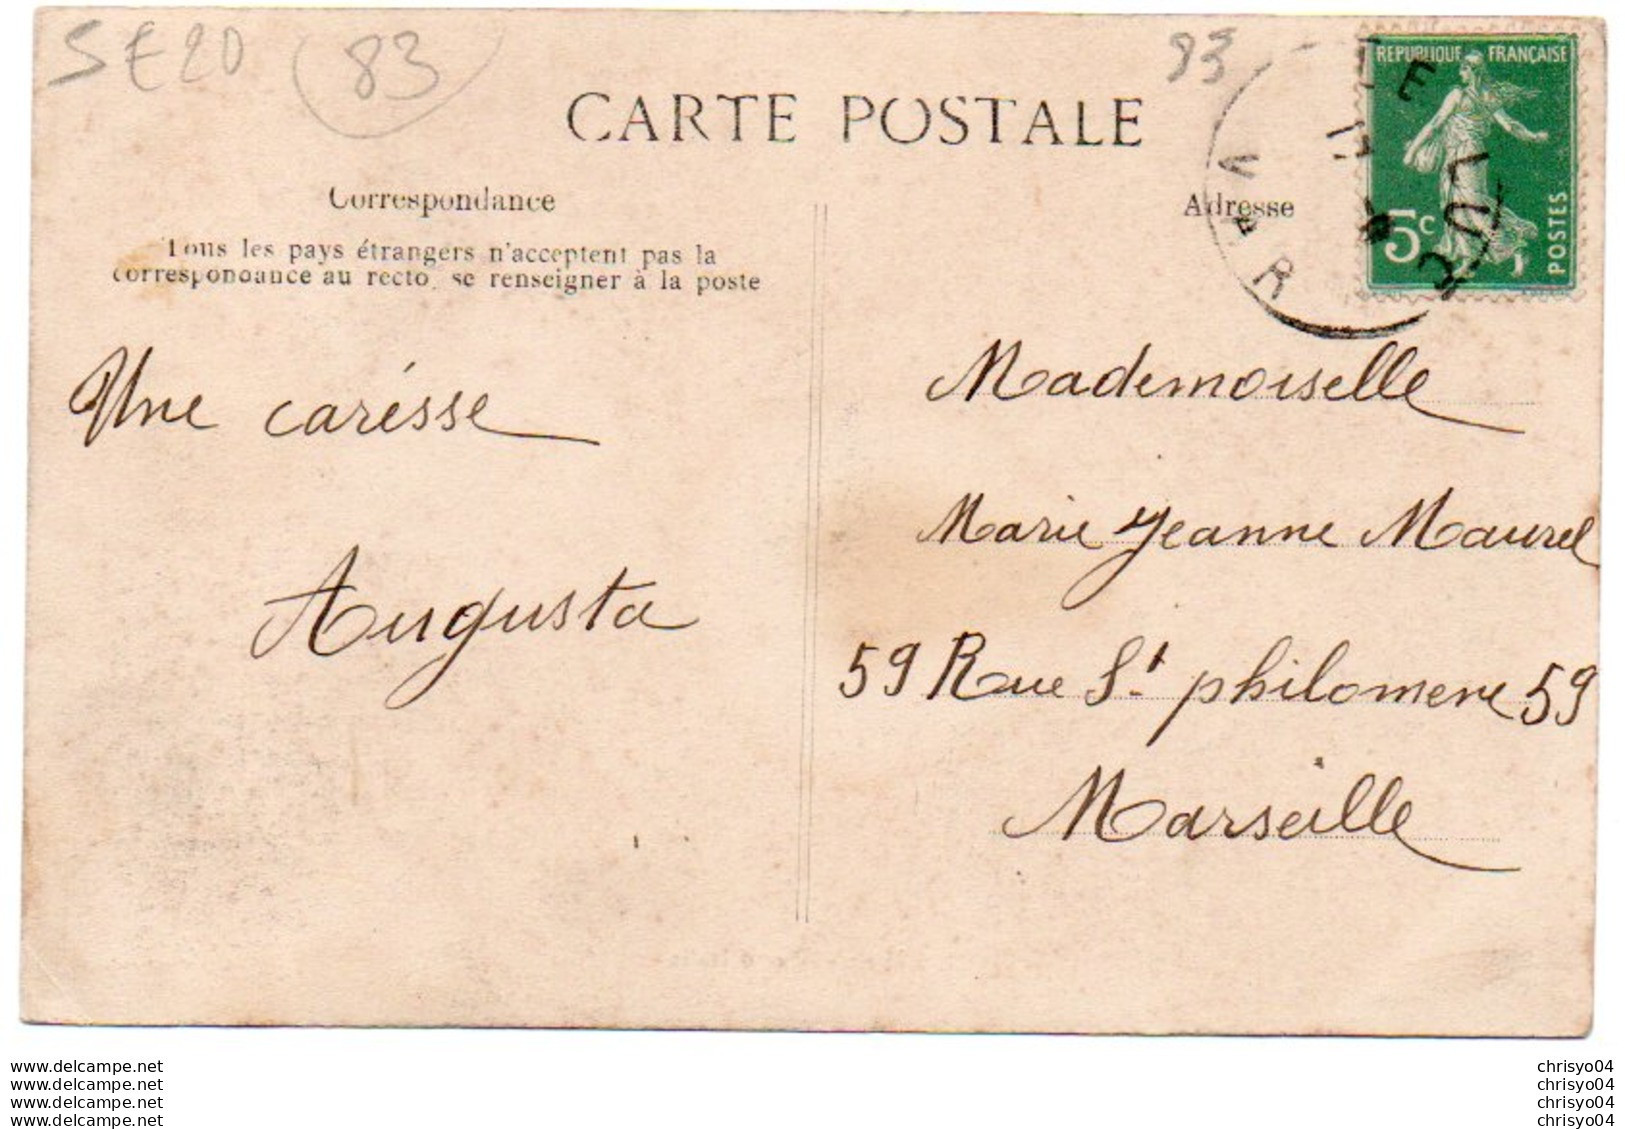 SE20
83
83
CARTE POSTALE
REPUBLIQUE FRANÇAISE
5c
POSTES
VAR
LUC
Correspondance
Adresse
Tous les pays étrangers n'acceptent pas la
correspondance au recto, se renseigner à la poste
Une carésse
Augusta
Mademoiselle
Marie Jeanne Maurel
59 Rue St philomene 59
Marseille
www.delcampe.net
www.delcampe.net
www.delcampe.net
www.delcampe.net
chrisyo04
chrisyo04
chrisyo04
chrisyo04